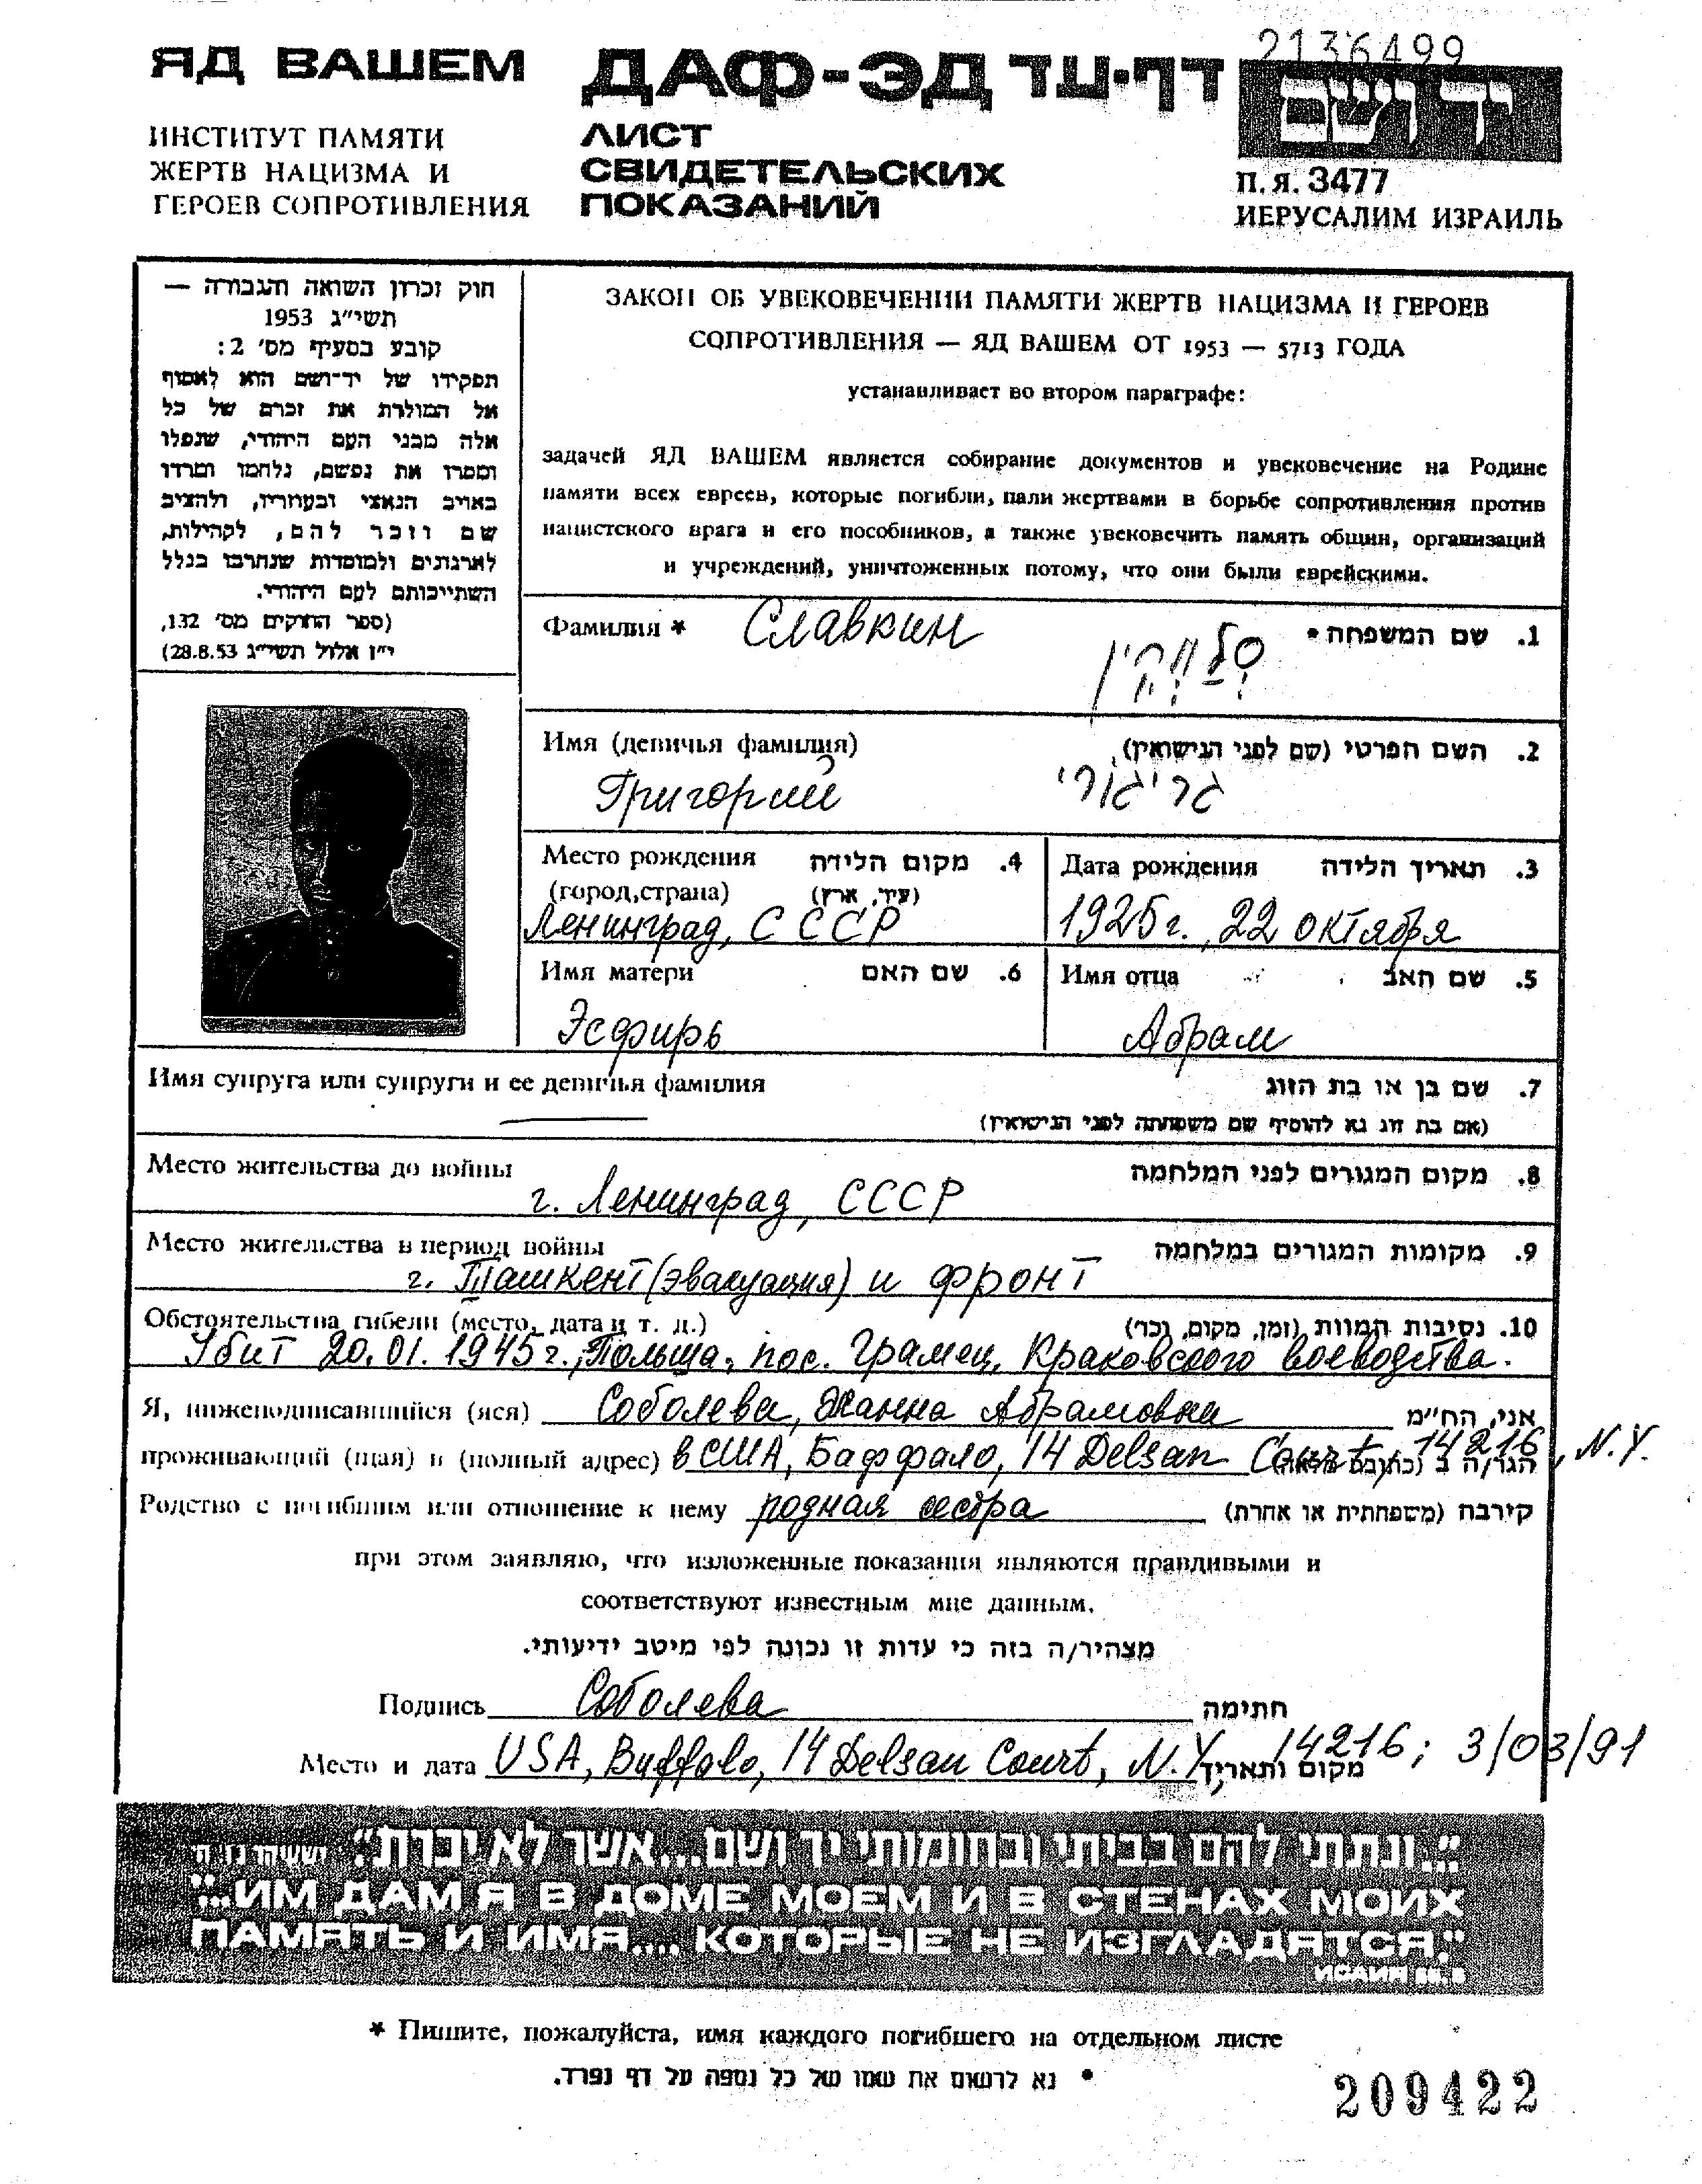 2136499
ЯД ВАШЕМ
ИНСТИТУТ ПАМЯТИ
ЖЕРТВ НАЦИЗМА И
ГЕРОЕВ СОПРОТИВЛЕНИЯ
ДАФ-ЭД דף-עד
ЛИСТ
СВИДЕТЕЛЬСКИХ
ПОКАЗАНИЙ
יד ושם
П.Я. 3477
ИЕРУСАЛИМ ИЗРАИЛЬ
חוק זכרון השואה והגבורה —
תשי״ג 1953
קובע בסעיף מס׳ 2:
תפקידו של יד־ושם הוא לאסוף
אל המולדת את זכרם של כל
אלה מבני העם היהודי, שנפלו
ומסרו את נפשם, נלחמו ומרדו
באויב הנאצי ובעוזריו, ולהציב
שם וזכר להם, לקהילות,
לארגונים ולמוסדות שנחרבו בגלל
השתייכותם לעם היהודי.
(ספר החוקים מס׳ 132,
י״ז אלול תשי״ג 28.8.53)
ЗАКОН ОБ УВЕКОВЕЧЕНИИ ПАМЯТИ ЖЕРТВ НАЦИЗМА И ГЕРОЕВ
СОПРОТИВЛЕНИЯ — ЯД ВАШЕМ ОТ 1953 — 5713 ГОДА
устанавливает во втором параграфе:
задачей ЯД ВАШЕМ является собирание документов и увековечение на Родине
памяти всех евреев, которые погибли, пали жертвами в борьбе сопротивления против
нацистского врага и его пособников, а также увековечить память общин, организаций
и учреждений, уничтоженных потому, что они были еврейскими.
Фамилия * Славкин 1. שם המשפחה •
סלווקין
Имя (девичья фамилия) 2. השם הפרטי (שם לפני הנישואין)
Григорий גריגורי
Место рождения 4. מקום הלידה
(город,страна) (עיר, ארץ)
Ленинград, СССР
Дата рождения 3. תאריך הלידה
1925г., 22 октября
Имя матери 6. שם האם
Эсфирь
Имя отца 5. שם האב
Абрам
Имя супруга или супруги и ее девичья фамилия 7. שם בן או בת הזוג
(אם בת זוג נא להוסיף שם משפחתה לפני הנישואין)
Место жительства до войны 8. מקום המגורים לפני המלחמה
г. Ленинград, СССР
Место жительства в период войны 9. מקומות המגורים במלחמה
г. Ташкент (эвакуация) и фронт
Обстоятельства гибели (место, дата и т. д.) 10. נסיבות המוות (זמן, מקום, וכו׳)
Убит 20.01.1945г., Польша, пос. Грамец, Краковского воеводства.
Я, нижеподписавшийся (яся) Соболева, Жанна Абрамовна אני, הח״מ
проживающий (щая) в (полный адрес) в США, Баффало, 14 Delsan Court, 14216, N.Y.
Родство с погибшим или отношение к нему родная сестра קירבה (משפחתית או אחרת)
при этом заявляю, что изложенные показания являются правдивыми и
соответствуют известным мне данным.
מצהיר/ה בזה כי עדות זו נכונה לפי מיטב ידיעותי.
Подпись Соболева חתימה
Место и дата USA, Buffalo, 14 Delsan Court, N.Y. 14216; 3/03/91 מקום ותאריך
״...ונתתי להם בביתי ובחומותי יד ושם...אשר לא יכרת״. ישעיהו נו, ה
"...ИМ ДАМ Я В ДОМЕ МОЕМ И В СТЕНАХ МОИХ
ПАМЯТЬ И ИМЯ.... КОТОРЫЕ НЕ ИЗГЛАДЯТСЯ."
ИСАИЯ 56. 5
* Пишите, пожалуйста, имя каждого погибшего на отдельном листе
• נא לרשום את שמו של כל נספה על דף נפרד.
209422